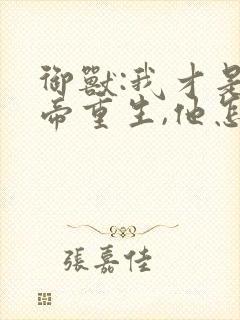 御獸:我才是
帝重生,他怎
張嘉佳